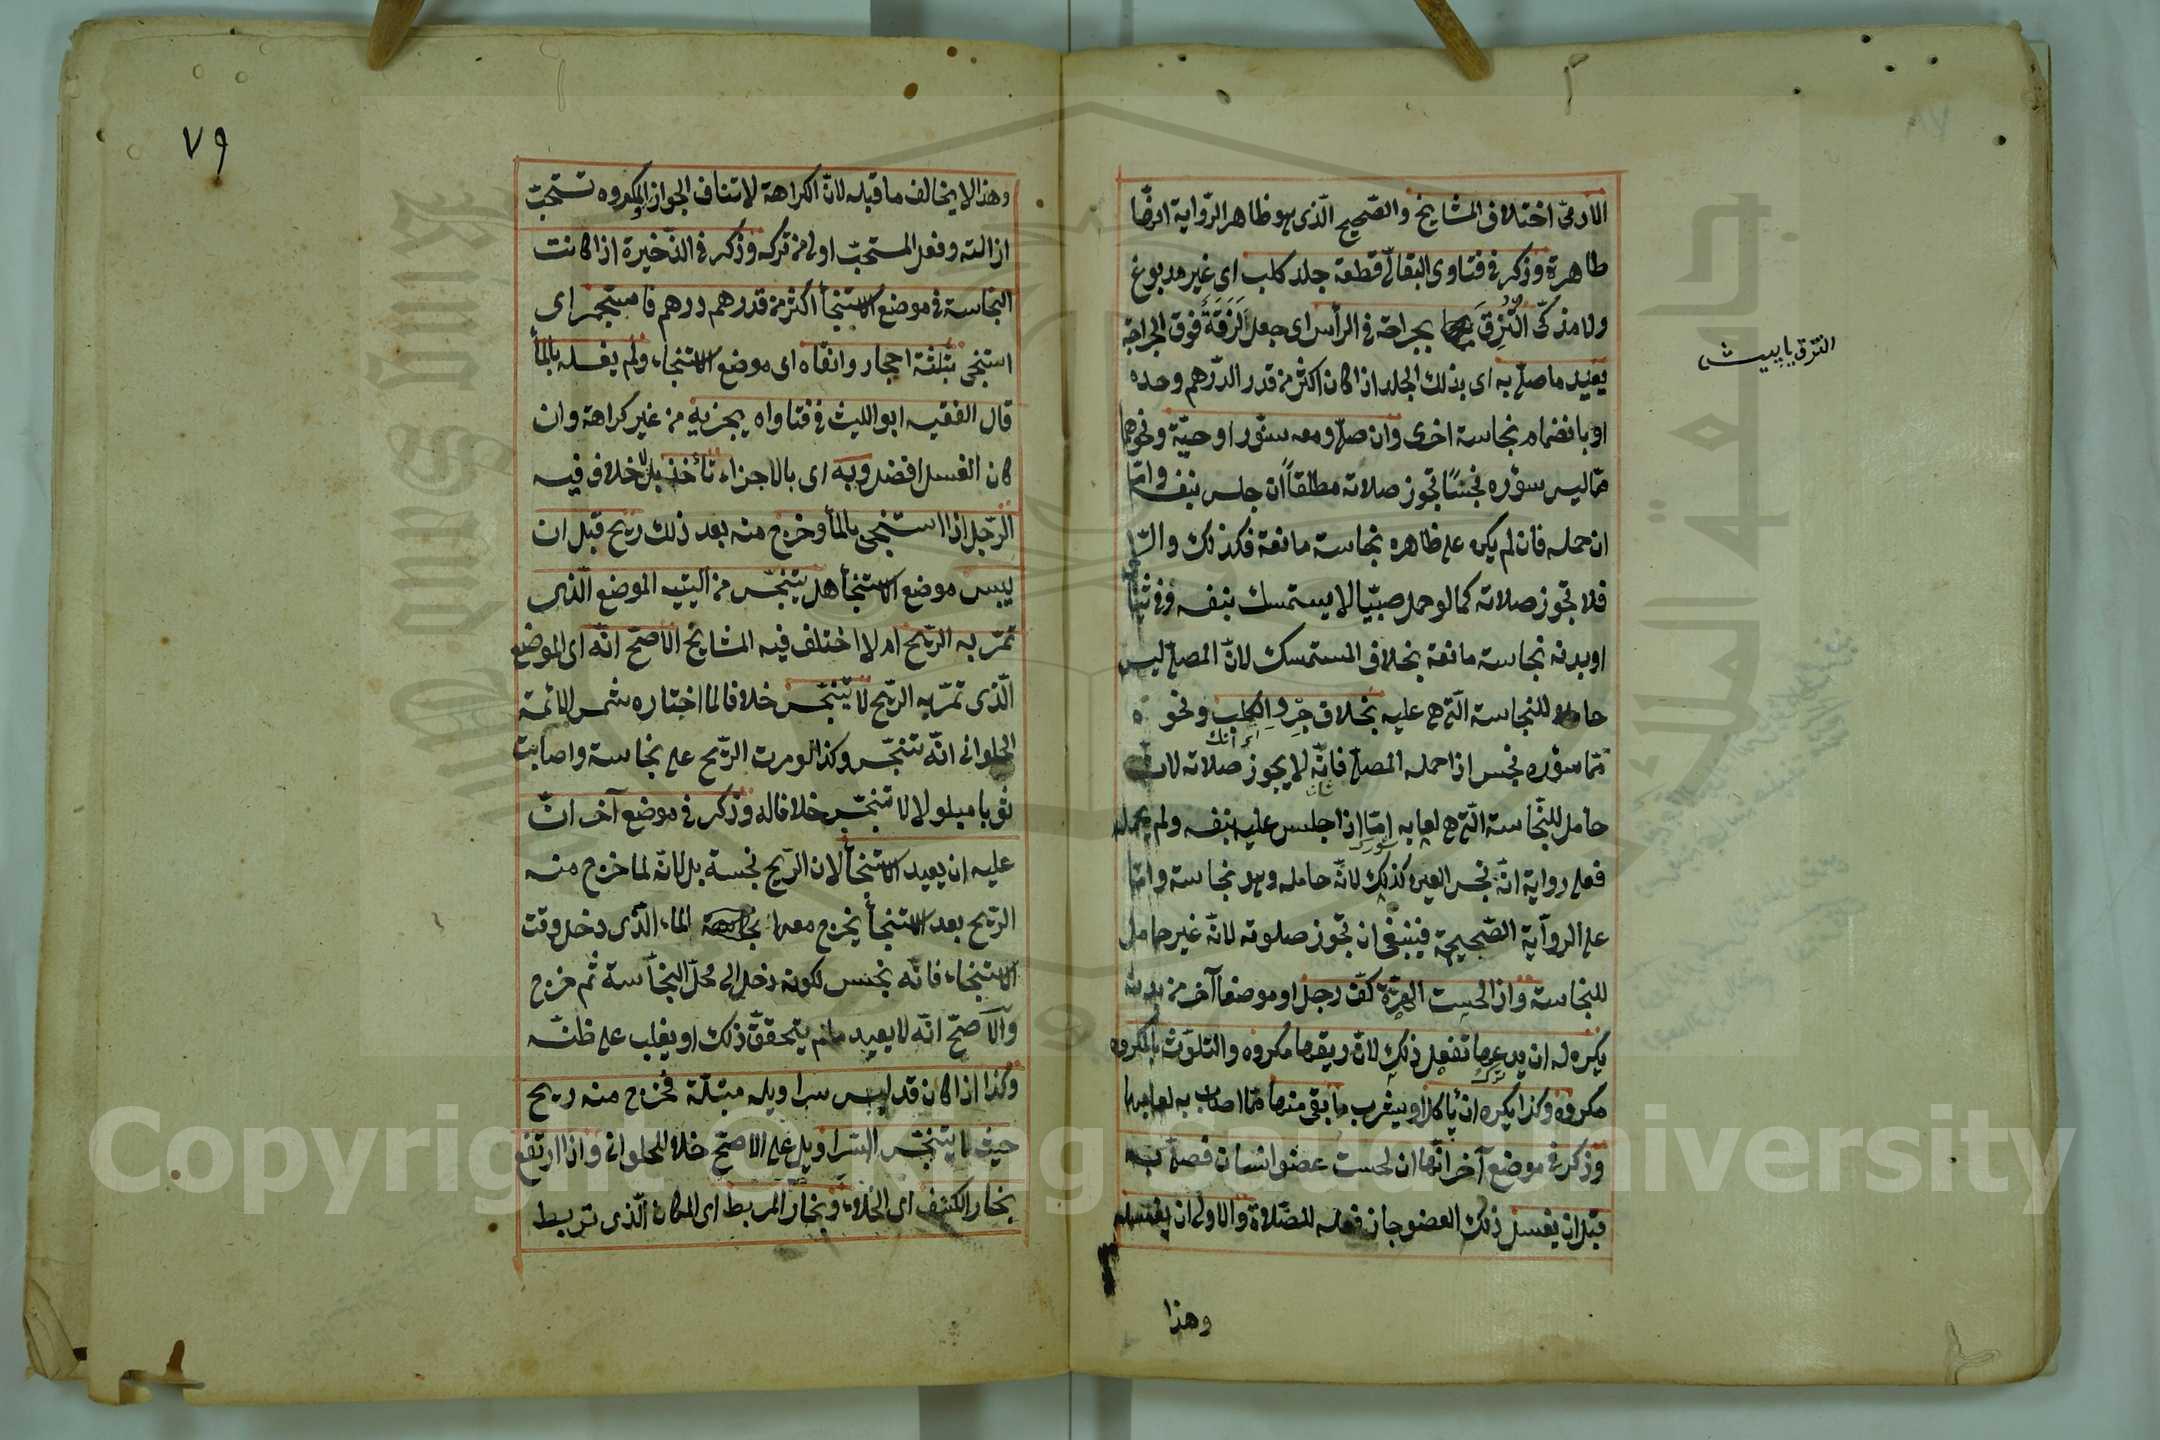 الادمىّ اختلاف المشايخ والصّحيح الّذى هو ظاهر الرّواية انها
طاهرة وذكر فى فتاوى البقالىّ قطعة جلد كلب اى غير مدبوغ
ولا مذكّى التُزِقَ بجراحة فى الرأس اى جعل لَزَقَةً فوق الجراحة
يعيد ما صلّى به اى بذلك الجلد اذا كان اكثر من قدر الدّرهم وحده
او بانضمام نجاسة اخرى وان صلّى ومعه سنّور او حيّة ونحوهما
ممّا ليس سؤره نجسًا تجوز صلاته مطلقاً ان جلس بنفسه وامّا
ان حمله فان لم يكن على ظاهره نجاسة مانعة فكذلك والّا
فلا تجوز صلاته كما لو حمل صبيّا لا يستمسك بنفسه وفى ثيابه
او بدنه نجاسة مانعة بخلاف المستمسك لانّ المصلّى ليس
حاملا للنجاسة الّتى هى عليه بخلاف جِرو الكلب ونحوه
ممّا سؤره نجس اذا حمله المصلّى فانّه لا يجوز صلاته لانّه
حامل للنّجاسة الّتى هى لعابه امّا اذا جلس عليه بنفسه ولم يحمله
فعلى رواية انّه نجس العين كذلك لانّه حامله وهو نجاسة وامّا
على الروآية الصّحيحة فينبغى ان تجوز صلوته لانّه غير حامل
للنجاسة واذا لحست الهرّة كفّ رجل او موضعا آخر من بدنه
يكره له ان يدعها تفعل ذلك لانّ ريقها مكروه والتلوّث بالمكروه
مكروه وكذا يكره ان يأكل او يشرب ما بقى منها ممّا اصاب به لعابها
وذكر فى موضع آخر انّها ان لحست عضو انسان فصلّى به
قبل ان يغسل ذلك العضو جاز فعله للصّلاة والاولى ان يغسله
وهذا
التزق يا پيشـ
٧٩
وهذا لا يخالف ما قبله لانّ الكراهة لا تنافى الجواز المكروه تستحبّ
ازالته وفعل المستحبّ اولى من تركه وذكر فى الذّخيرة اذا كانت
النجاسة فى موضع الاستنجأ اكثر من قدر درهم فاستجمر اى
استنجى بثلثة احجار وانقاه اى موضع الاستنجاء ولم يغسله بالمأ
قال الفقيه ابو الليث فى فتاواه يجزيه من غير كراهة وان
كان الغسل افضل وبه اى بالاجزاء نأخذ بل لا خلاف فيه
الرّجل اذا استنجى بالمأ وخرج منه بعد ذلك ريح قبل ان
ييبس موضع الاستنجأ هل يتنجّس من اليتيه الموضع الّذى
تمرّ به الرّيح ام لا اختلف فيه المشايخ الاصحّ انّه اى الموضع
الّذى تمرّ به الرّيح لا يتنجّس خلافا لما اختاره شمس الائمّة
الحلوانى انّه يتنجّس وكذا لو مرت الرّيح على نجاسة واصابت
ثوبا مبلولا لا يتنجّس خلافا له وذكر فى موضع آخر انّ
عليه ان يعيد الاستنجأ لا ان الرّيح نجسة بل لانّه لما خرج منه
الرّيح بعد الاستنجأ يخرج معها الماء الّذى دخل وقت
الاستنجاء فانّه نجس لكونه دخل الى محلّ النجآسة ثم خرج
والآصحّ انّه لا يعيد ما لم يتحقّق ذلك او يغلب على ظنّه
وكذا اذا كان قد لبس سراويله مبتلّة فخرج منه ريح
حيث لا يتنجّس السّراويل على الاصحّ خلافا للحلوانى واذا ارتفع
بخار الكنيف اى الخلاء وبخار المربط اى المكان الّذى تربط